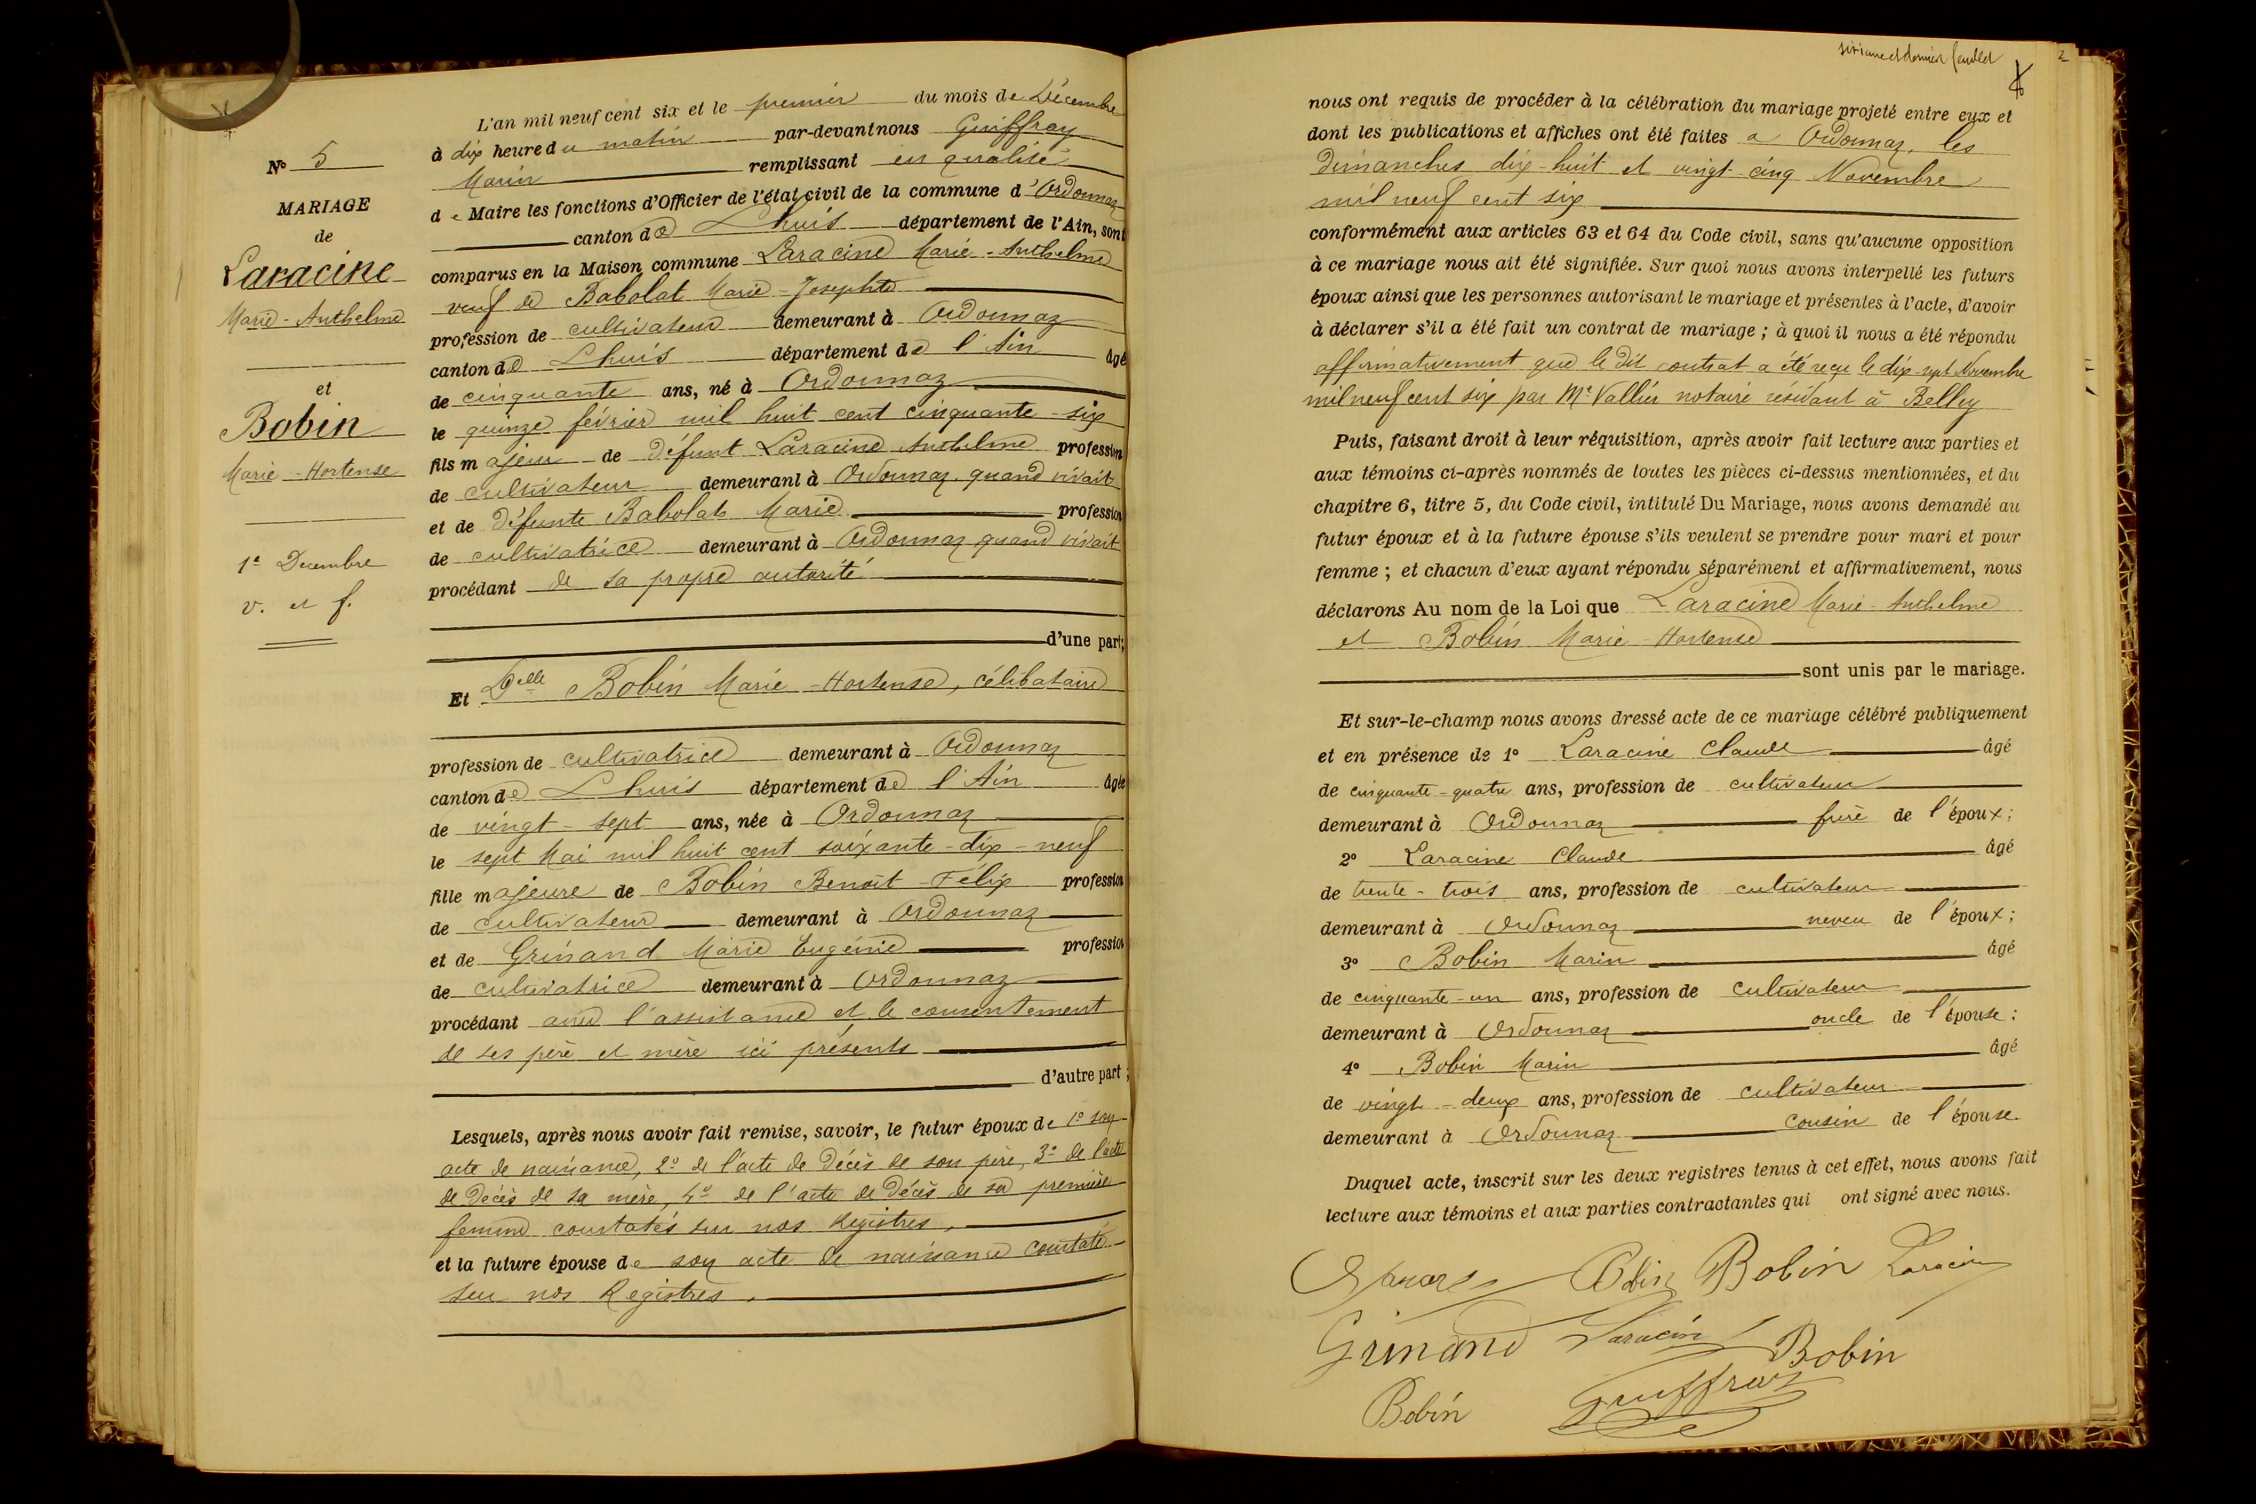 L'an mil neuf cent six et le premier du mois de Décembre
à dix heure du matin par-devant nous Guiffray
Marin remplissant en qualité
de Maire les fonctions d'Officier de l'état civil de la commune d'Ordonnaz
canton de Lhuis département de l'Ain, sont
comparus en la Maison commune Laracine Marie-Anthelme
veuf de Babolat Marie-Josephte
profession de cultivateur demeurant à Ordonnaz
canton de Lhuis département de l'Ain âgé
de cinquante ans, né à Ordonnaz
le quinze février mil huit cent cinquante-six
fils majeur de défunt Laracine Anthelme profession
de cultivateur demeurant à Ordonnaz quand vivait
et de défunte Babolat Marie profession
de cultivatrice demeurant à Ordonnaz quand vivait
procédant de sa propre autorité
d'une part;
Et Delle Bobin Marie-Hortense, célibataire
profession de cultivatrice demeurant à Ordonnaz
canton de Lhuis département de l'Ain âgée
de vingt-sept ans, née à Ordonnaz
le sept Mai mil huit cent soixante-dix-neuf
fille majeure de Bobin Benoît-Félix profession
de cultivateur demeurant à Ordonnaz
et de Grinand Marie Eugénie profession
de cultivatrice demeurant à Ordonnaz
procédant avec l'assistance et le consentement
de ses père et mère ici présents
d'autre part;
Lesquels, après nous avoir fait remise, savoir, le futur époux de 1° son
acte de naissance, 2° de l'acte de décès de son père, 3° de l'acte
de décès de sa mère, 4° de l'acte de décès de sa première
femme constatés sur nos Registres,
et la future épouse de son acte de naissance constaté
sur nos Registres.
N° 5
MARIAGE
de
Laracine
Marie-Anthelme
et
Bobin
Marie-Hortense
1er Décembre
v. et f.
sixième et dernier feuillet
2
nous ont requis de procéder à la célébration du mariage projeté entre eux et
dont les publications et affiches ont été faites à Ordonnaz, les
dimanches dix-huit et vingt-cinq Novembre
mil neuf cent six
conformément aux articles 63 et 64 du Code civil, sans qu'aucune opposition
à ce mariage nous ait été signifiée. Sur quoi nous avons interpellé les futurs
époux ainsi que les personnes autorisant le mariage et présentes à l'acte, d'avoir
à déclarer s'il a été fait un contrat de mariage ; à quoi il nous a été répondu
affirmativement que le dit contrat a été reçu le dix-sept Novembre
mil neuf cent six par Me Vallier notaire résidant à Belley
Puis, faisant droit à leur réquisition, après avoir fait lecture aux parties et
aux témoins ci-après nommés de toutes les pièces ci-dessus mentionnées, et du
chapitre 6, titre 5, du Code civil, intitulé Du Mariage, nous avons demandé au
futur époux et à la future épouse s'ils veulent se prendre pour mari et pour
femme ; et chacun d'eux ayant répondu séparément et affirmativement, nous
déclarons Au nom de la Loi que Laracine Marie-Anthelme
et Bobin Marie-Hortense
sont unis par le mariage.
Et sur-le-champ nous avons dressé acte de ce mariage célébré publiquement
et en présence de 1° Laracine Claude âgé
de cinquante-quatre ans, profession de cultivateur
demeurant à Ordonnaz frère de l'époux;
2° Laracine Claude âgé
de trente-trois ans, profession de cultivateur
demeurant à Ordonnaz neveu de l'époux;
3° Bobin Marin âgé
de cinquante-un ans, profession de cultivateur
demeurant à Ordonnaz oncle de l'épouse;
4° Bobin Marin âgé
de vingt-deux ans, profession de cultivateur
demeurant à Ordonnaz cousin de l'épouse.
Duquel acte, inscrit sur les deux registres tenus à cet effet, nous avons fait
lecture aux témoins et aux parties contractantes qui ont signé avec nous.
Bobin Bobin Laracine
Grinand Laracine Bobin
Bobin Guiffray